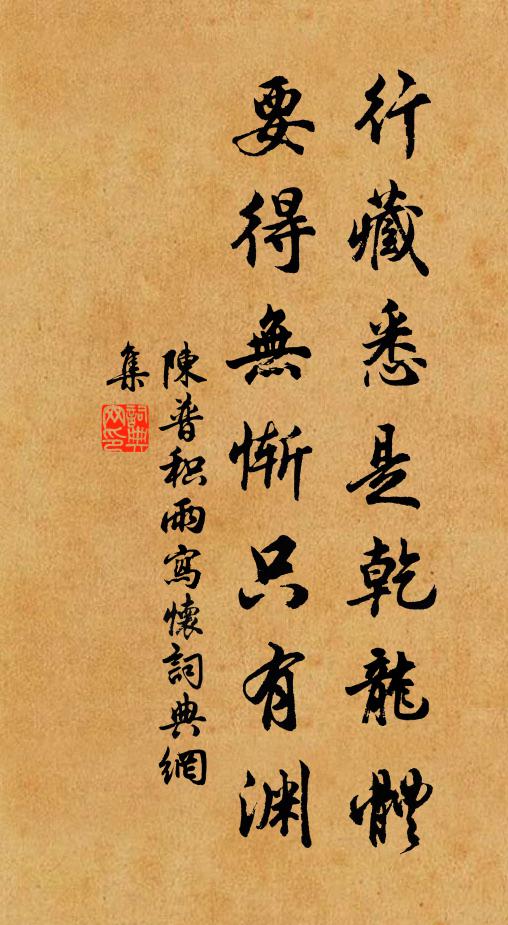 行藏悉是乾龍體
要得無慚只有淵
陳普积雨寫懷詞典網
集
詞典
网印